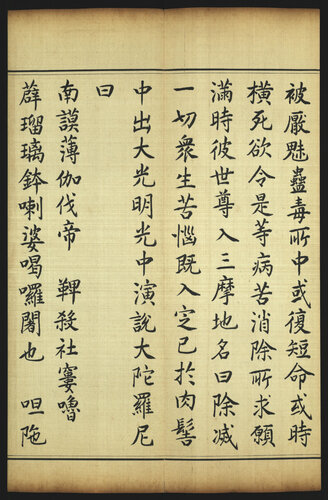 被厭魅蠱毒所中或復短命或時
橫死欲令是等病苦消除所求願
滿時彼世尊入三摩地名曰除滅
一切衆生苦惱既入定已於肉髻
中出大光明光中演說大陀羅尼
曰
南謨薄伽伐帝 鞞殺社窶嚕
薜瑠璃鉢喇婆喝囉闍也 呾陁